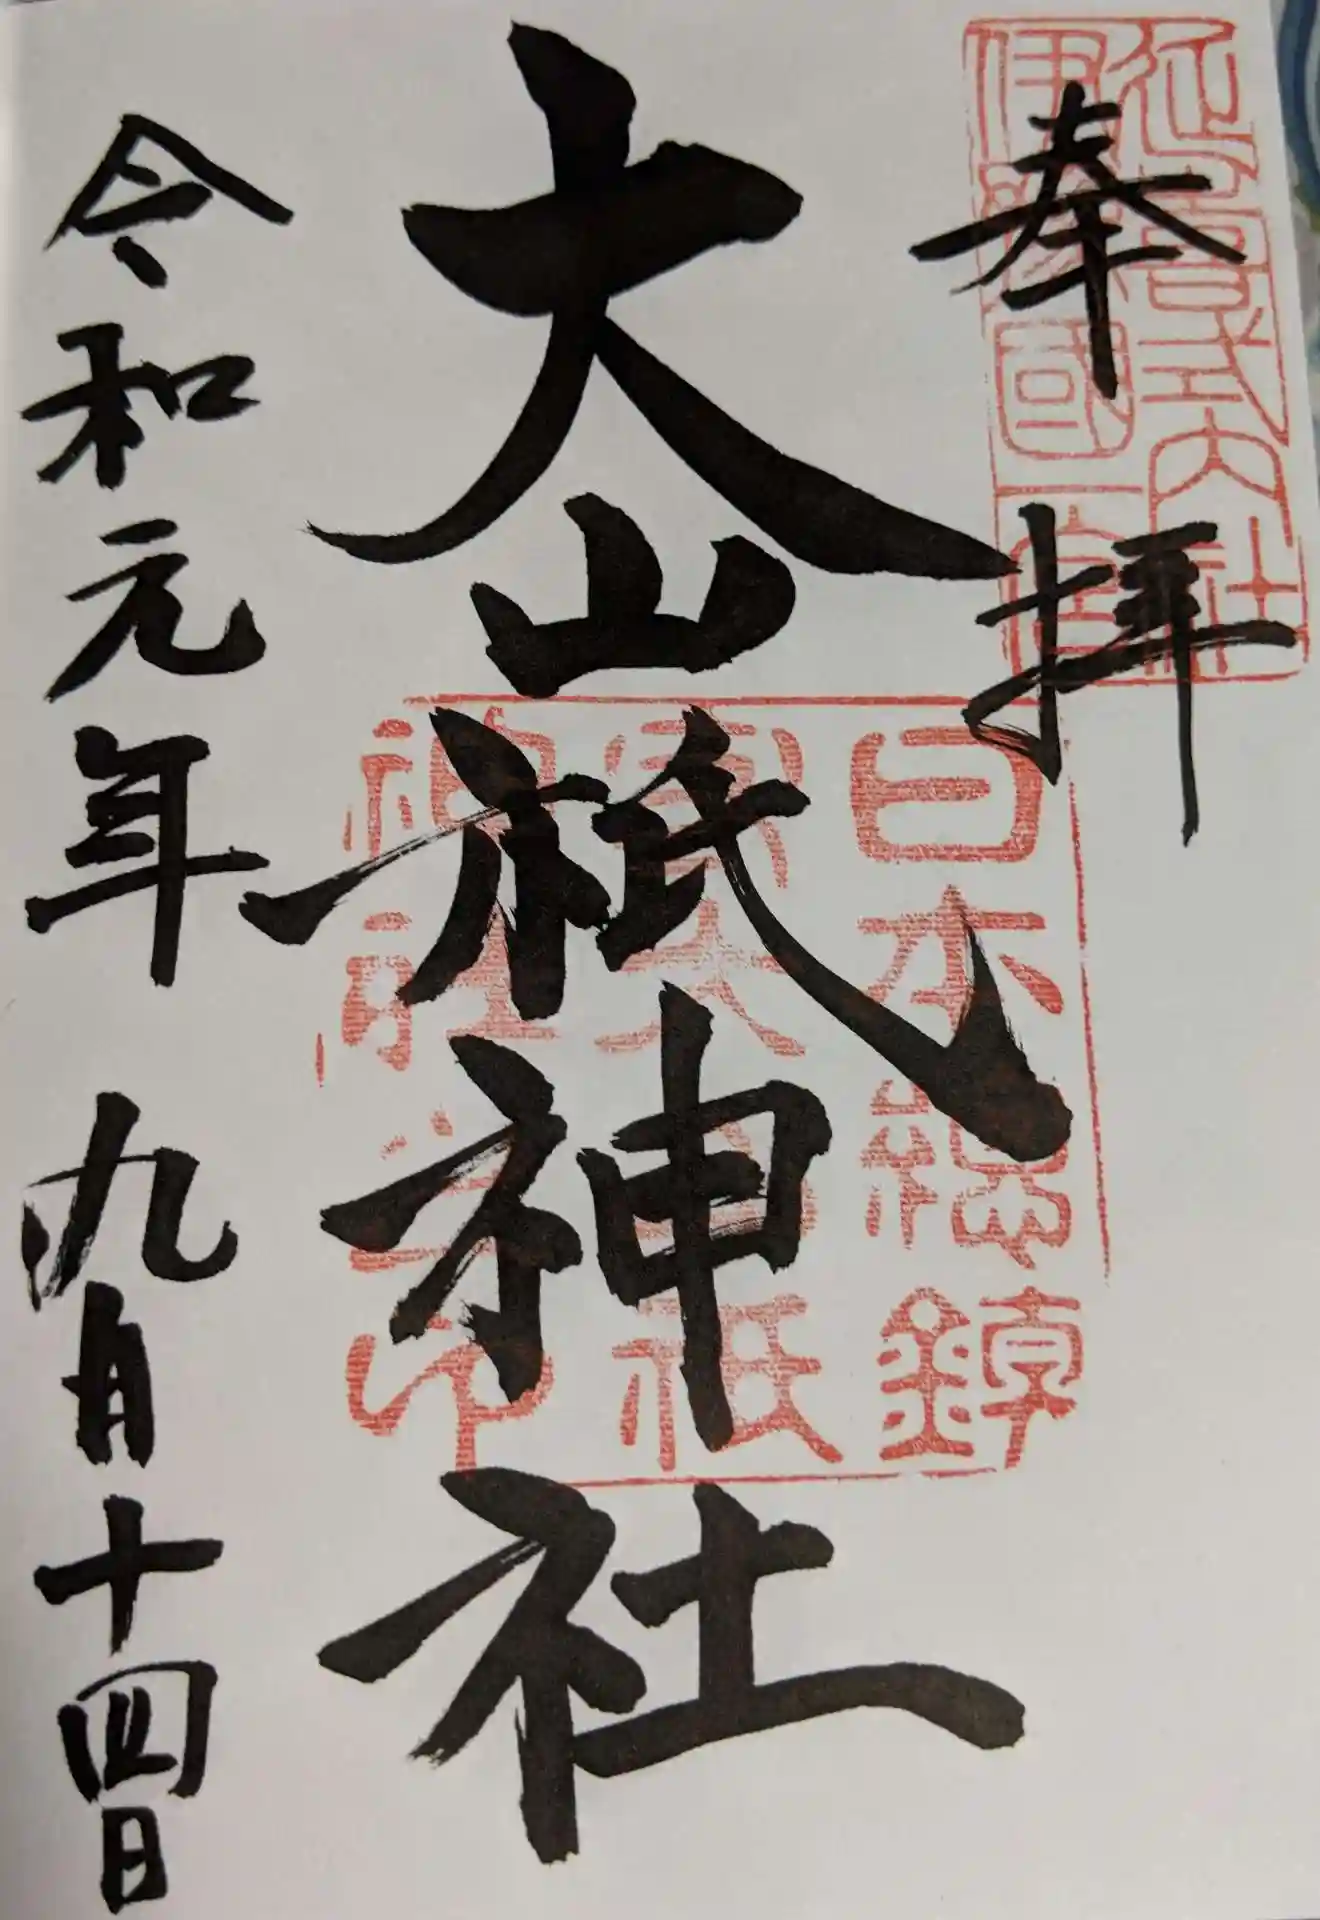 奉拝
延喜式内社
伊豫國一宮
大山祇神社
日本総鎮
守大山祇
神社参印
令和元年 九月十四日